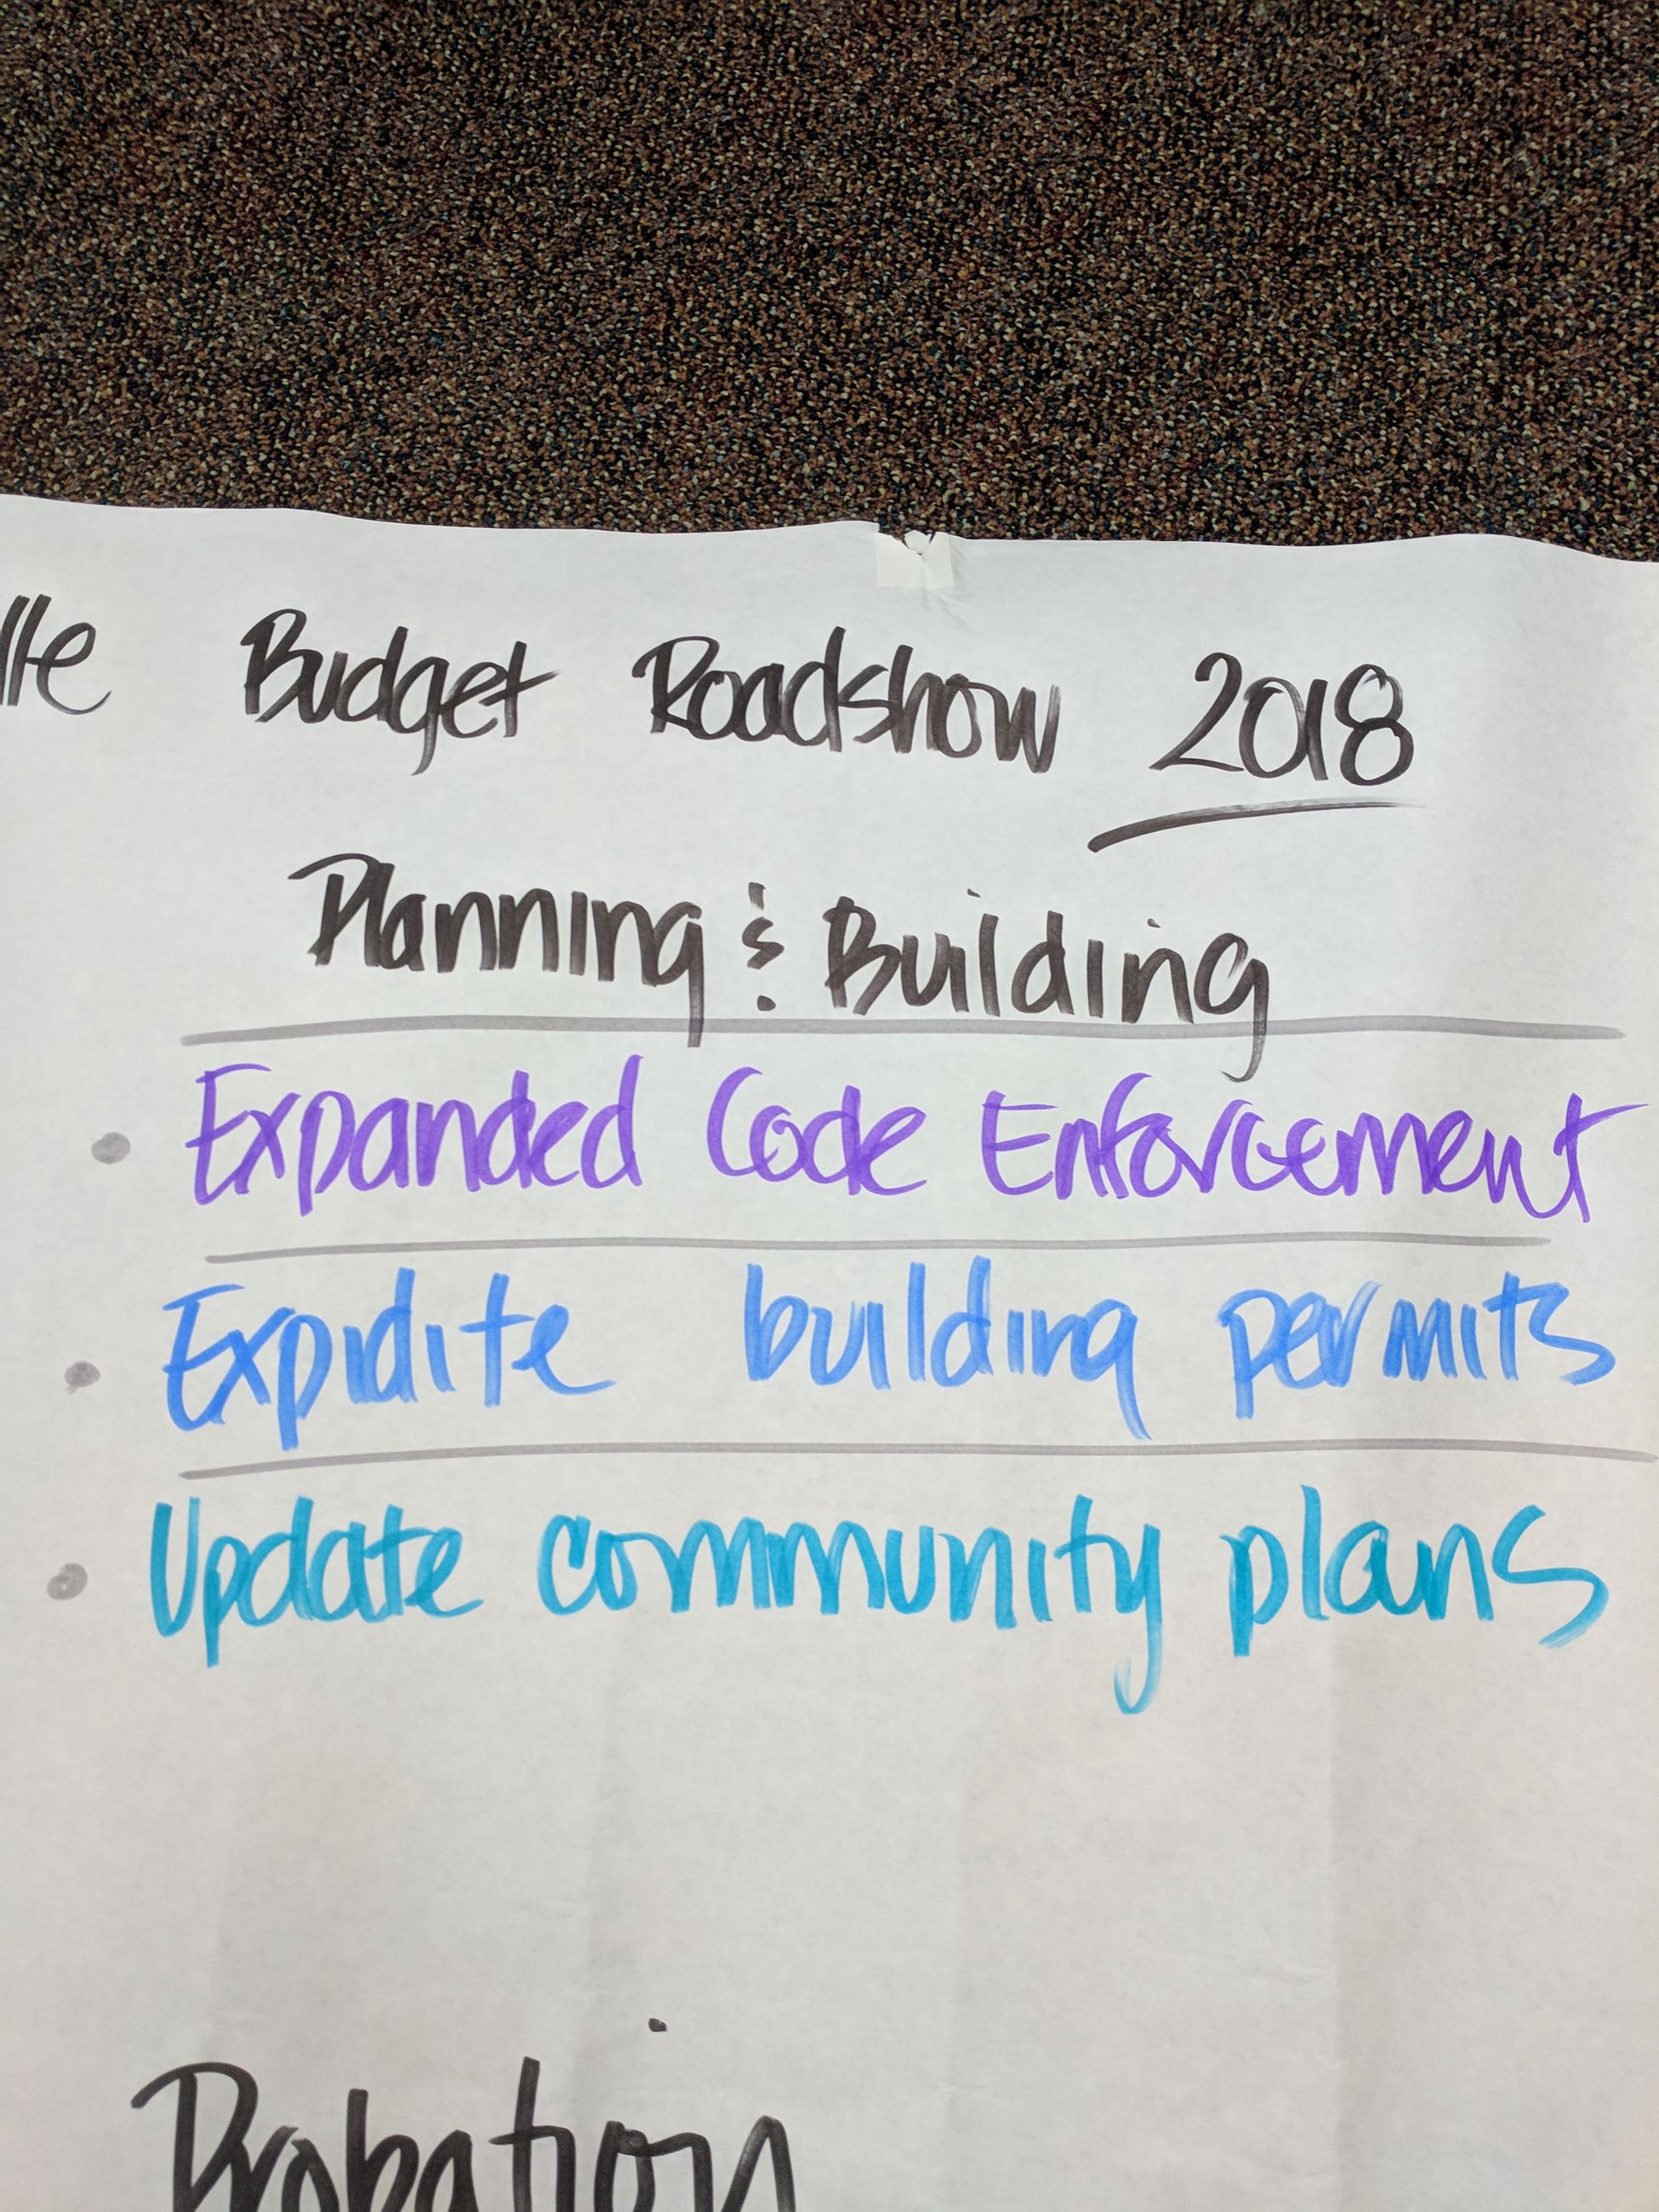 Budget Roadshow 2018
Planning & Building
• Expanded Code Enforcement
• Expidite building permits
• Update community plans
Probation